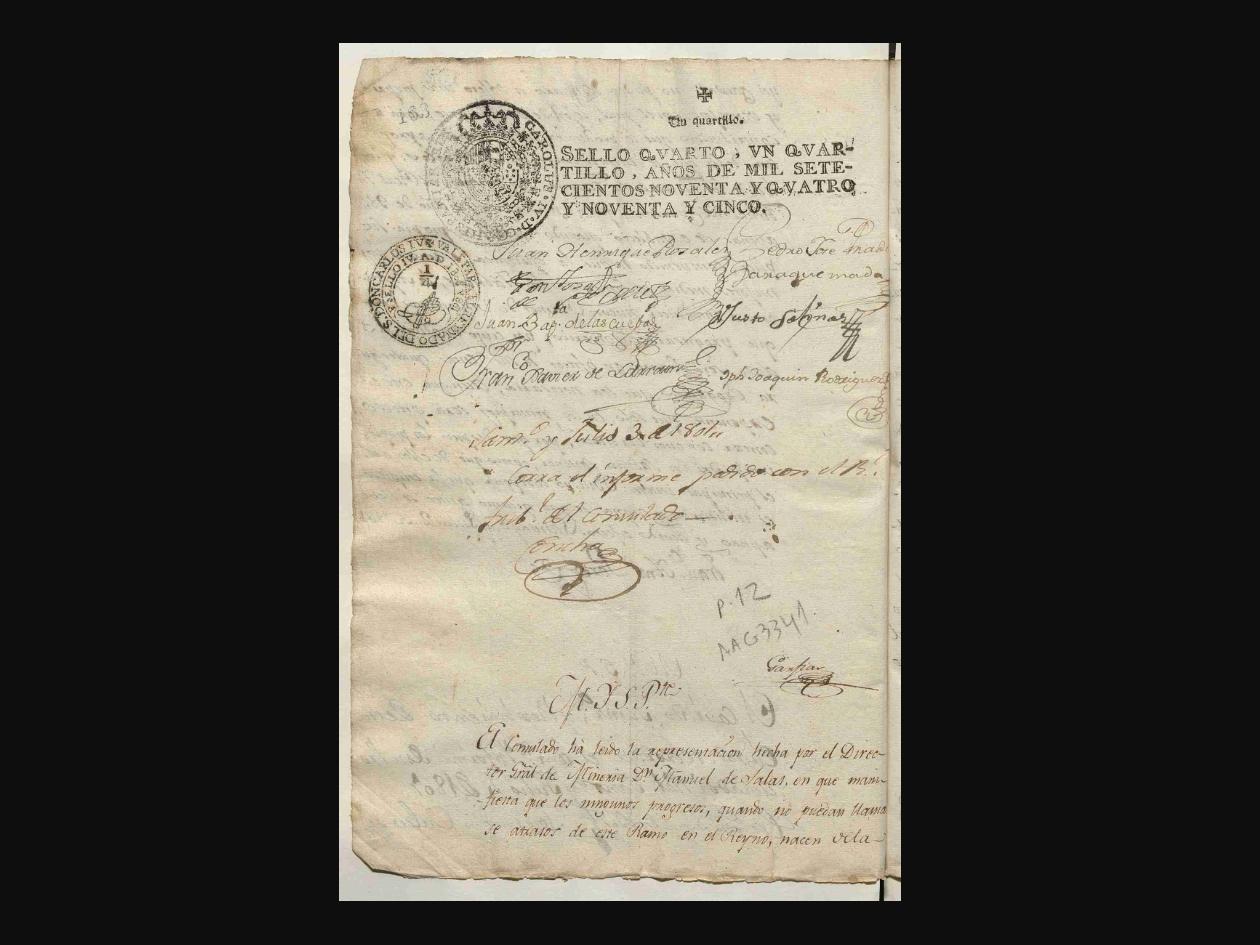 183
Un quartillo.
SELLO QVARTO, VN QVAR-
TILLO, AÑOS DE MIL SETE-
CIENTOS NOVENTA Y QVATRO
Y NOVENTA Y CINCO.
CAROLUS·IV·D·G·
VALGA PARA EL REYNADO DEL S. DON CARLOS IV
Juan Henrique Rosales Pedro José
Juan Bap.ta de las cuebas Justo Salinas
Fran.co Xavier de Larrain Jph Joaquin Rodriguez
y Julio 3 de 1804
Corra el informe pedido con el R.l
Trib.l del Consulado
Concha
p. 12
AAG3341.
M. Y. S. P.te
El Consulado há leido la representacion hecha por el Direc-
tor Gral de Mineria Dn. Manuel de Salas, en que mani-
fiesta que los ningunos progresos, quando no puedan llama
se atrasos de este Ramo en el Reyno, nacen dela